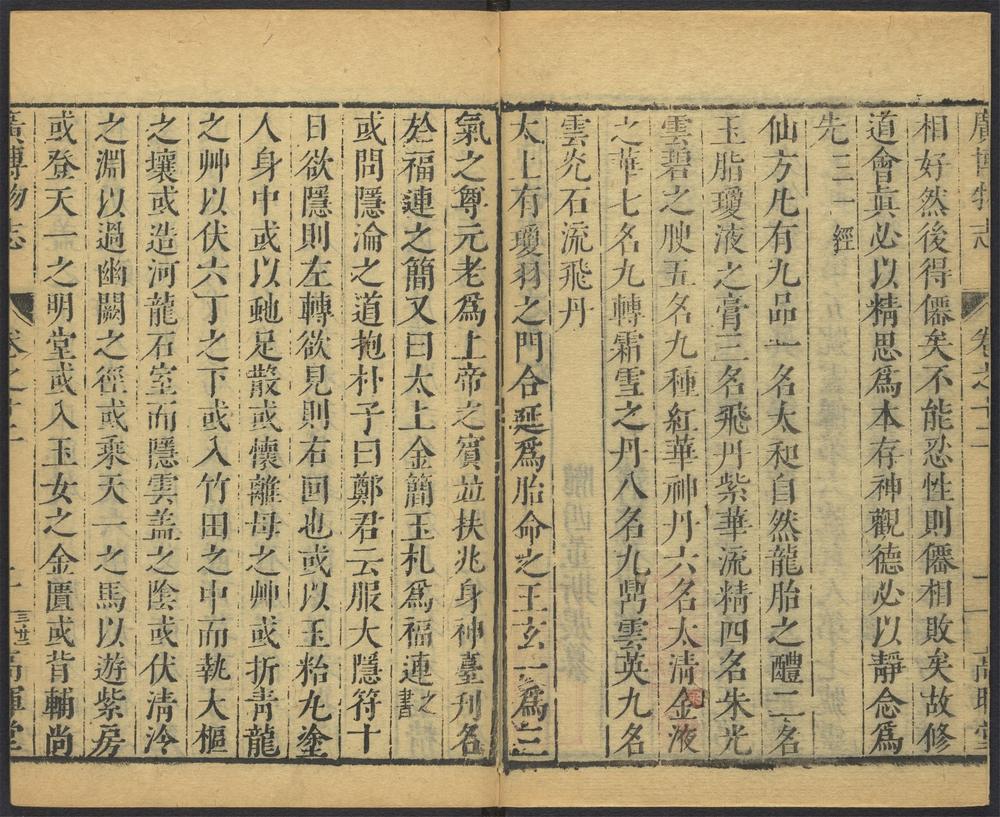 廣博物志 卷之十二 二 高暉堂
相好然後得僊矣不能忍性則僊相敗矣故修
道會眞必以精思爲本存神觀德必以靜念爲
先三一經
仙方凡有九品一名太和自然龍胎之醴二名
玉脂瓊液之膏三名飛丹紫華流精四名朱光
雲碧之腴五名九種紅華神丹六名太清金液
之華七名九轉霜雪之丹八名九鼎雲英九名
雲炎石流飛丹
太上有瓊羽之門合延爲胎命之王玄一爲三
氣之尊元老爲上帝之賓竝扶兆身神臺刋名
於福連之簡又曰太上金簡玉札爲福連之書
或問隱淪之道抱朴子曰鄭君云服大隱符十
日欲隱則左轉欲見則右回也或以玉粭九塗
人身中或以虵足散或懷離母之艸或折靑龍
之艸以伏六丁之下或入竹田之中而執大樞
之壤或造河龍石室而隱雲盖之陰或伏淸泠
之淵以過幽闕之徑或乘天一之馬以遊紫房
或登天一之明堂或入玉女之金匱或背輔尚
廣博物志 卷之十二 三 高暉堂